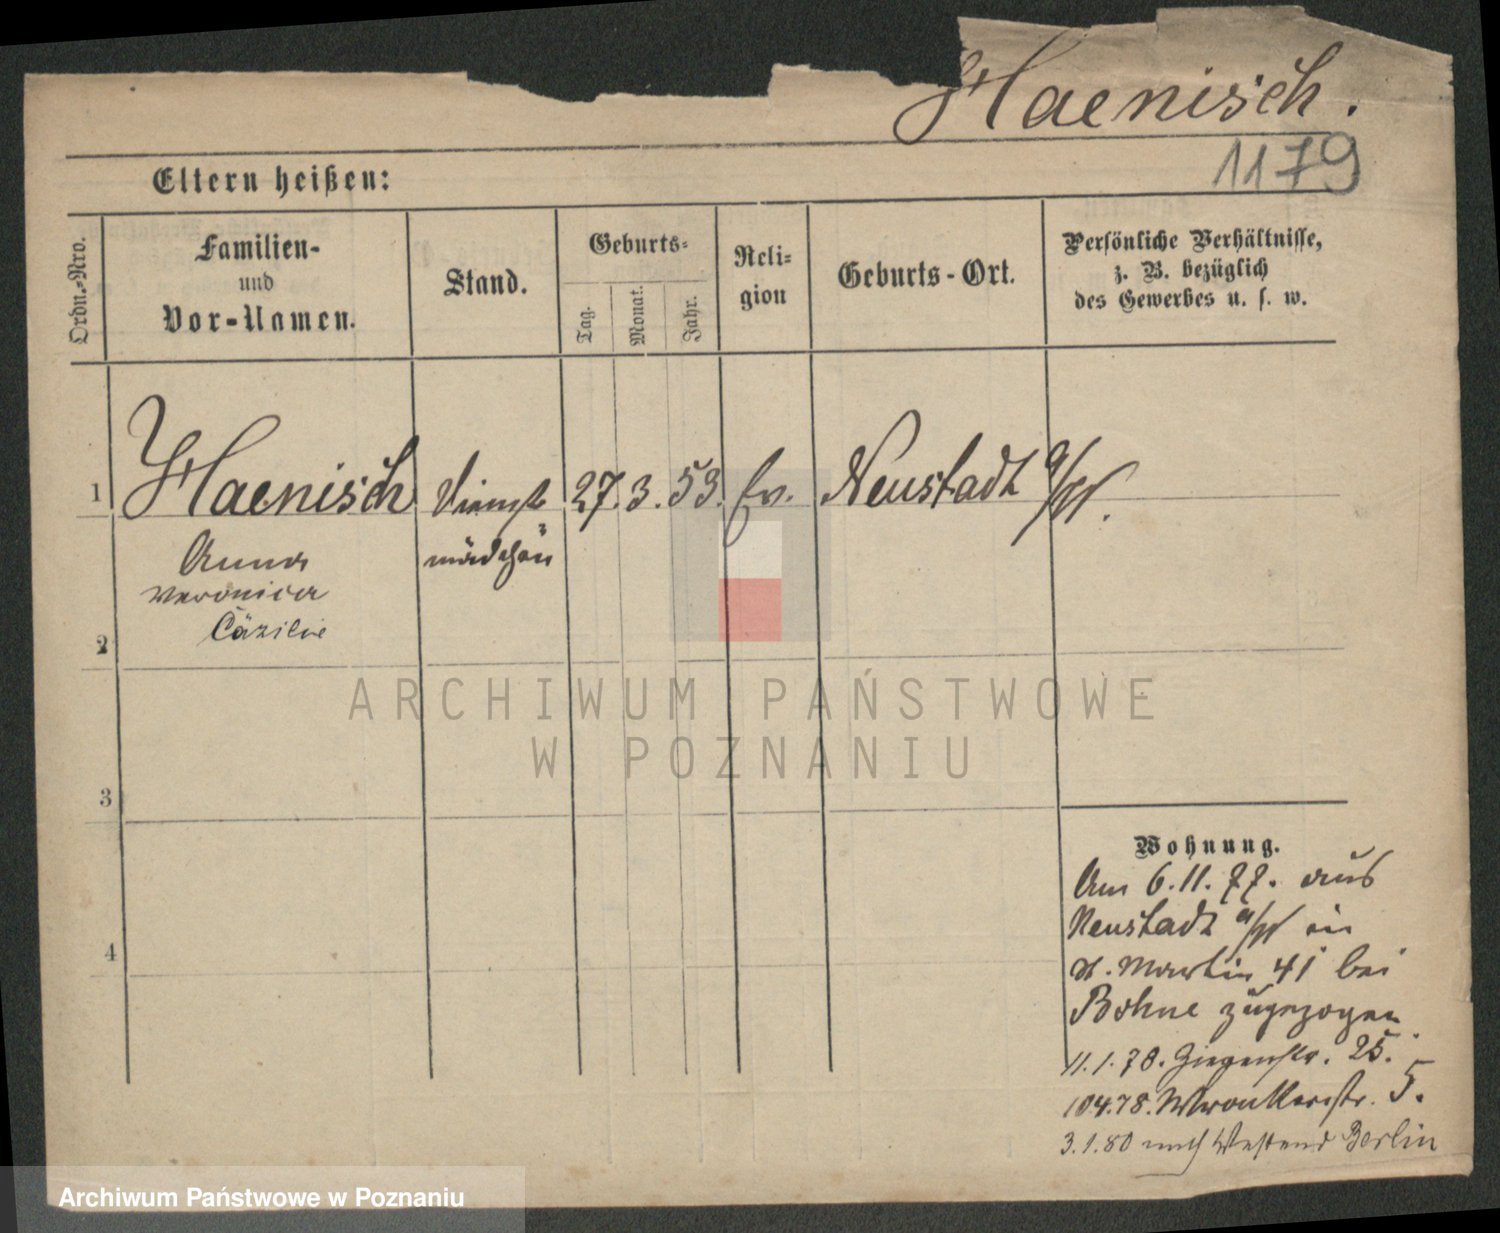 Haenisch.
1179
Eltern heißen:
Ordn.-Nro.
Familien-
und
Vor-Namen.
Stand.
Geburts-
Tag.
Monat.
Jahr.
Reli-
gion
Geburts-Ort.
Persönliche Verhältnisse,
z. B. bezüglich
des Gewerbes u. s. w.
1 Haenisch Dienst 27. 3. 53. Ev. Neustadt a/W.
Anna mädchen
Veronica
Cäzilie
2
ARCHIWUM PAŃSTWOWE
W POZNANIU
3
Wohnung.
Am 6.11.77. aus
Neustadt a/W in
St. Martin 41 bei
4
Bohne zugezogen
11.1.78. Ziegenstr. 25.
10.4.78. Wronkerstr. 5.
3.1.80 nach Westend Berlin
Archiwum Państwowe w Poznaniu